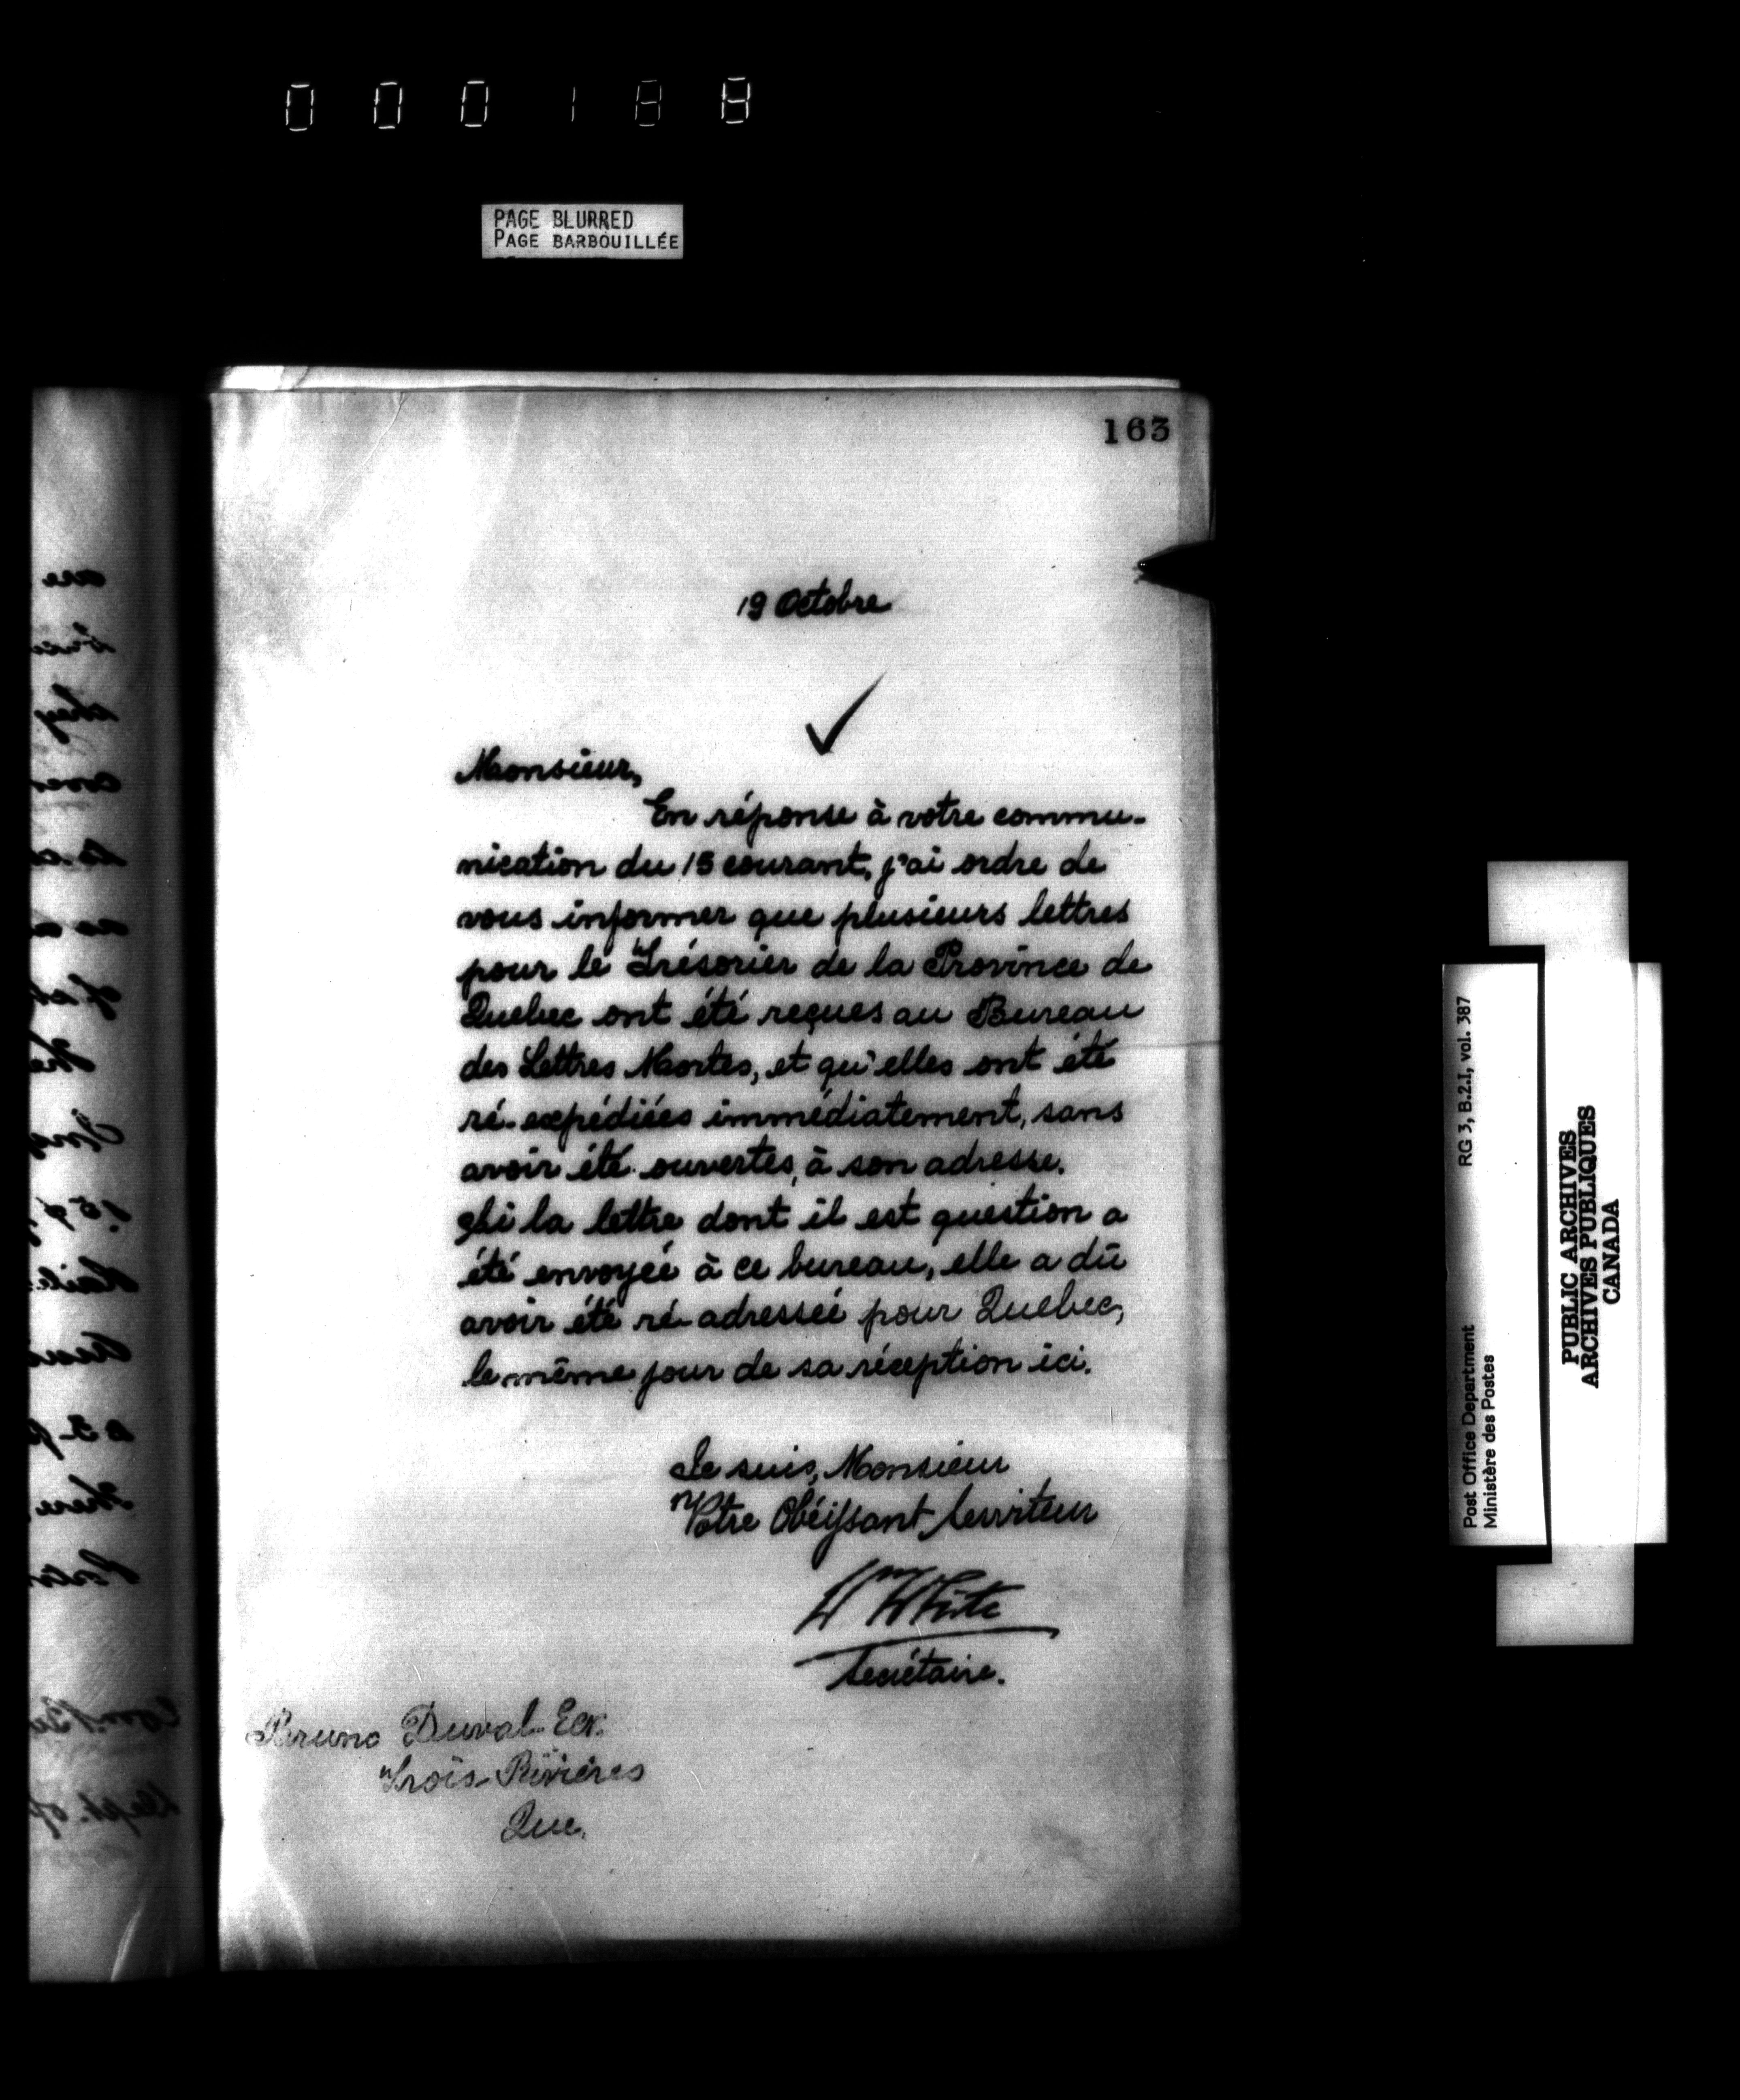 000188
PAGE BLURRED
PAGE BARBOUILLÉE
163
19 Octobre
Monsieur,
En réponse à votre commu-
nication du 15 courant, j'ai ordre de
vous informer que plusieurs lettres
pour le Trésorier de la Province de
Quebec ont été reçues au Bureau
des Lettres Mortes, et qu'elles ont été
ré-expédiées immédiatement, sans
avoir été ouvertes, à son adresse.
Si la lettre dont il est question a
été envoyée à ce bureau, elle a dû
avoir été ré-adressée pour Quebec,
le même jour de sa réception ici.
Je suis, Monsieur
Votre Obéissant Serviteur
Wm White
Secrétaire.
Bruno Duval Ecr.
Trois-Rivières
Que.
Post Office Department
Ministère des Postes
RG 3, B.2.I, vol. 387
PUBLIC ARCHIVES
ARCHIVES PUBLIQUES
CANADA